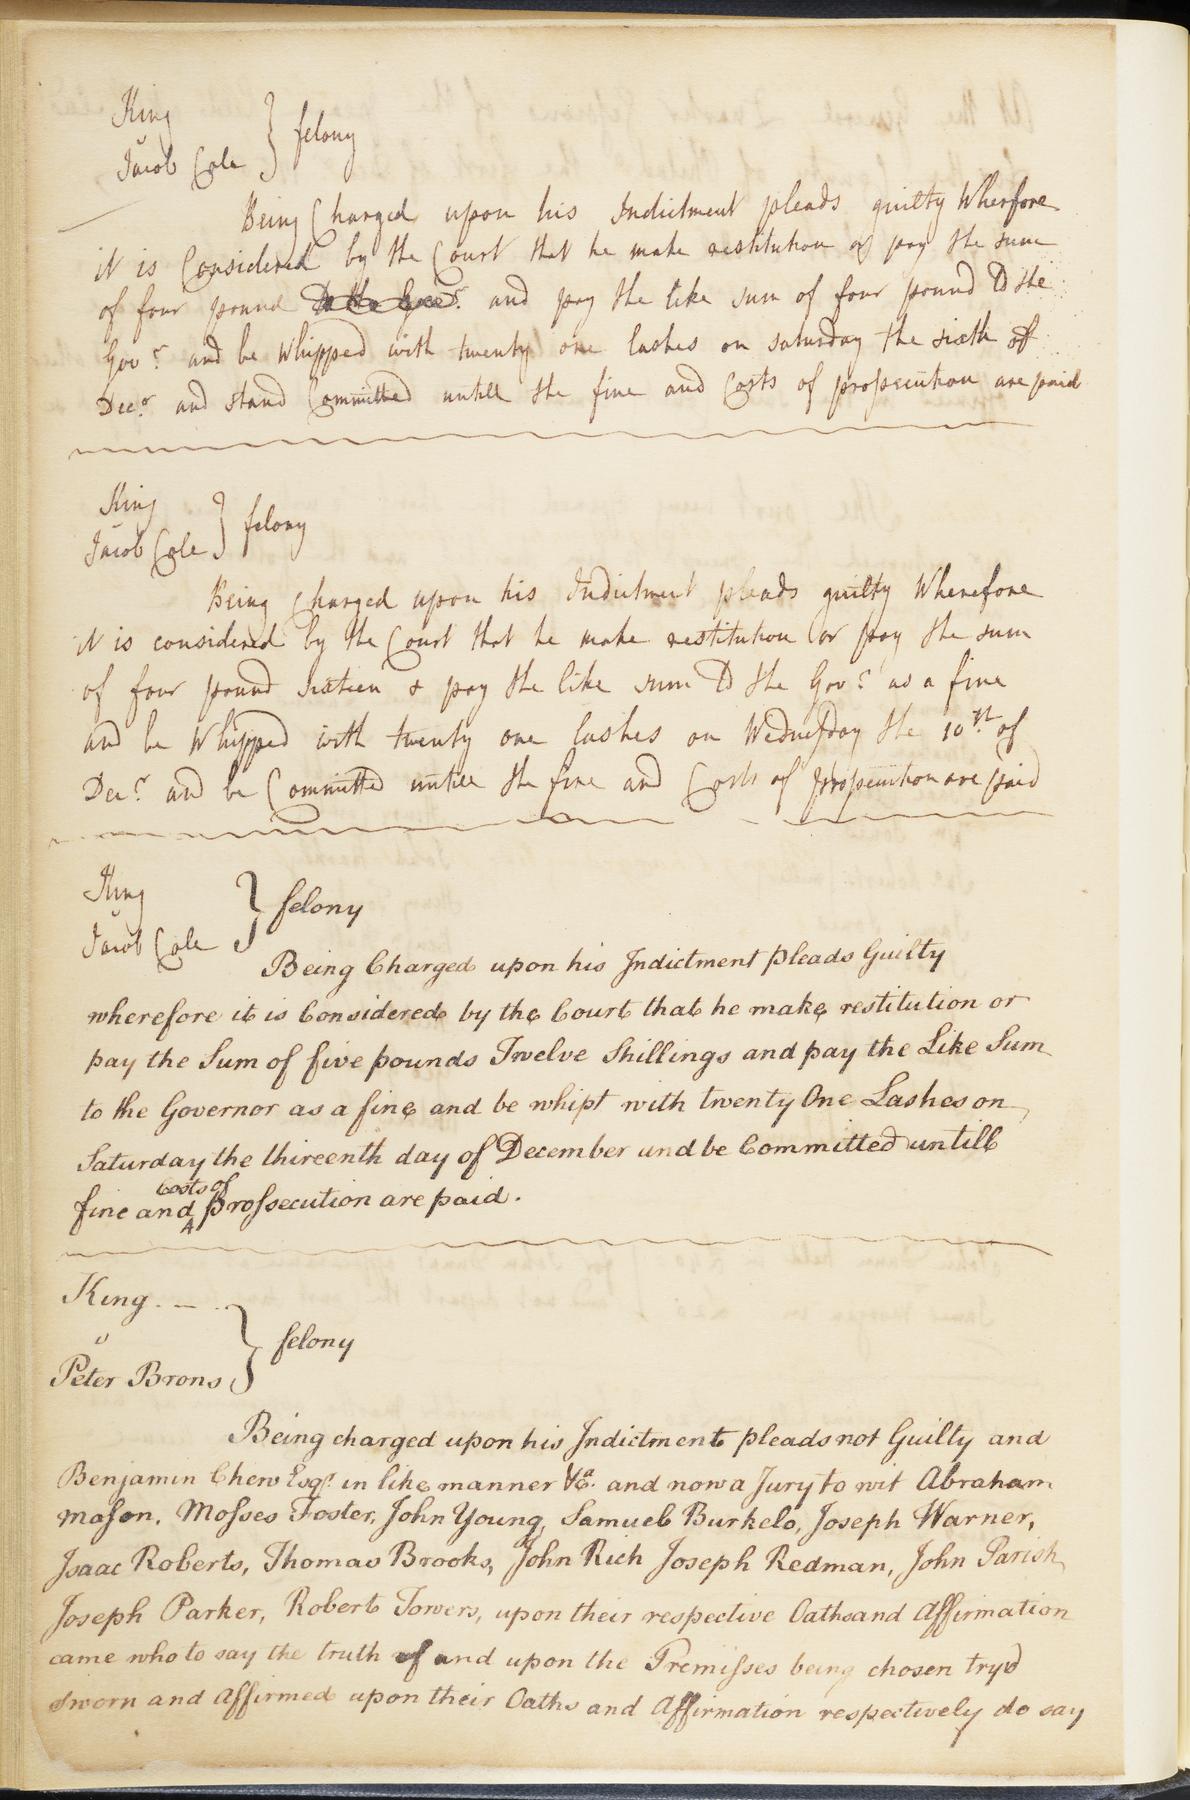 King
v
Jacob Cole } felony
Being Charged upon his Indictment pleads guilty Wherfore
it is Considered by the Court that he make restitution or pay the sum
of four pound to the Govr. and pay the like sum of four pound to the
Govr. and be Whipped with twenty one lashes on saturday the sixth of
Decr. and stand Committed untill the fine and Costs of prosecution are paid
King
v
Jacob Cole } felony
Being Charged upon his Indictment pleads guilty Wherefore
it is considered by the Court that he make restitution or pay the sum
of four pound sixteen & pay the like sum to the Govr. as a fine
and be Whipped with twenty one lashes on Wednesday the 10th of
Decr. and be Committed untill the fine and Costs of prosecution are paid
King
v
Jacob Cole } felony
Being Charged upon his Indictment pleads Guilty
wherefore it is Considered by the Court that he make restitution or
pay the Sum of five pounds Twelve Shillings and pay the Like Sum
to the Governor as a fine and be whipt with twenty One Lashes on
Saturday the thireenth day of December and be Committed untill
fine and Costs of prossecution are paid.
King
v
Peter Brons } felony
Being charged upon his Indictment pleads not Guilty and
Benjamin Chew Esqr. in like manner &ca. and now a Jury to wit Abraham
Mason, Mosses Foster, John Young, Samuel Burkelo, Joseph Warner,
Isaac Roberts, Thomas Brooks, John Rich Joseph Redman, John Parish
Joseph Parker, Robert Towers, upon their respective Oaths and Affirmation
came who to say the truth of and upon the Premisses being chosen tryd
sworn and Affirmed upon their Oaths and Affirmation respectively do say